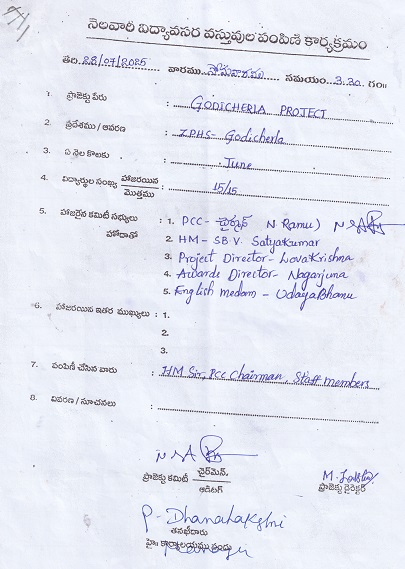 నెలవారీ విద్యావసర వస్తువుల పంపిణి కార్యక్రమం
తేది. 28/07/2025 వారము.. సోమవారము సమయం.. 3.30 గం॥
1. ప్రాజెక్టు పేరు : GODICHERLA PROJECT
2. ప్రదేశము / ఆవరణ : ZPHS- Godicherla
3. ఏ నెల కొలకు : June
4. విద్యార్థుల సంఖ్య హాజరయిన / మొత్తము : 15/15
5. హాజరైన కమిటీ సభ్యులు హోదాతో : 1. PCC- చైర్మన్ N Ramu)
2. HM - S.B.V. Satyakumar
3. Project Director - LovaKrishna
4. Awarde Director - Nagarjuna
5. English medam - UdayaBhanu
6. హాజరయిన ఇతర ముఖ్యులు : 1.
2.
3.
7. పంపిణీ చేసిన వారు : HM Sir, PCC Chairman, Staff members
8. వివరణ / సూచనలు :
ప్రాజెక్టు కమిటీ చైర్‌మెన్. / ఆడిటర్
ప్రాజెక్టు డైరెక్టర్
P- Dhanalakshmi
తనఖీదారు
హై: కార్యాలయము నందు